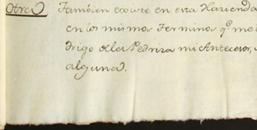 Otro) Tambien exovre en esta Hacienda
en los mismos Terminos qe me
drigo de la Pedriza mi Antecesor, s
alguna).